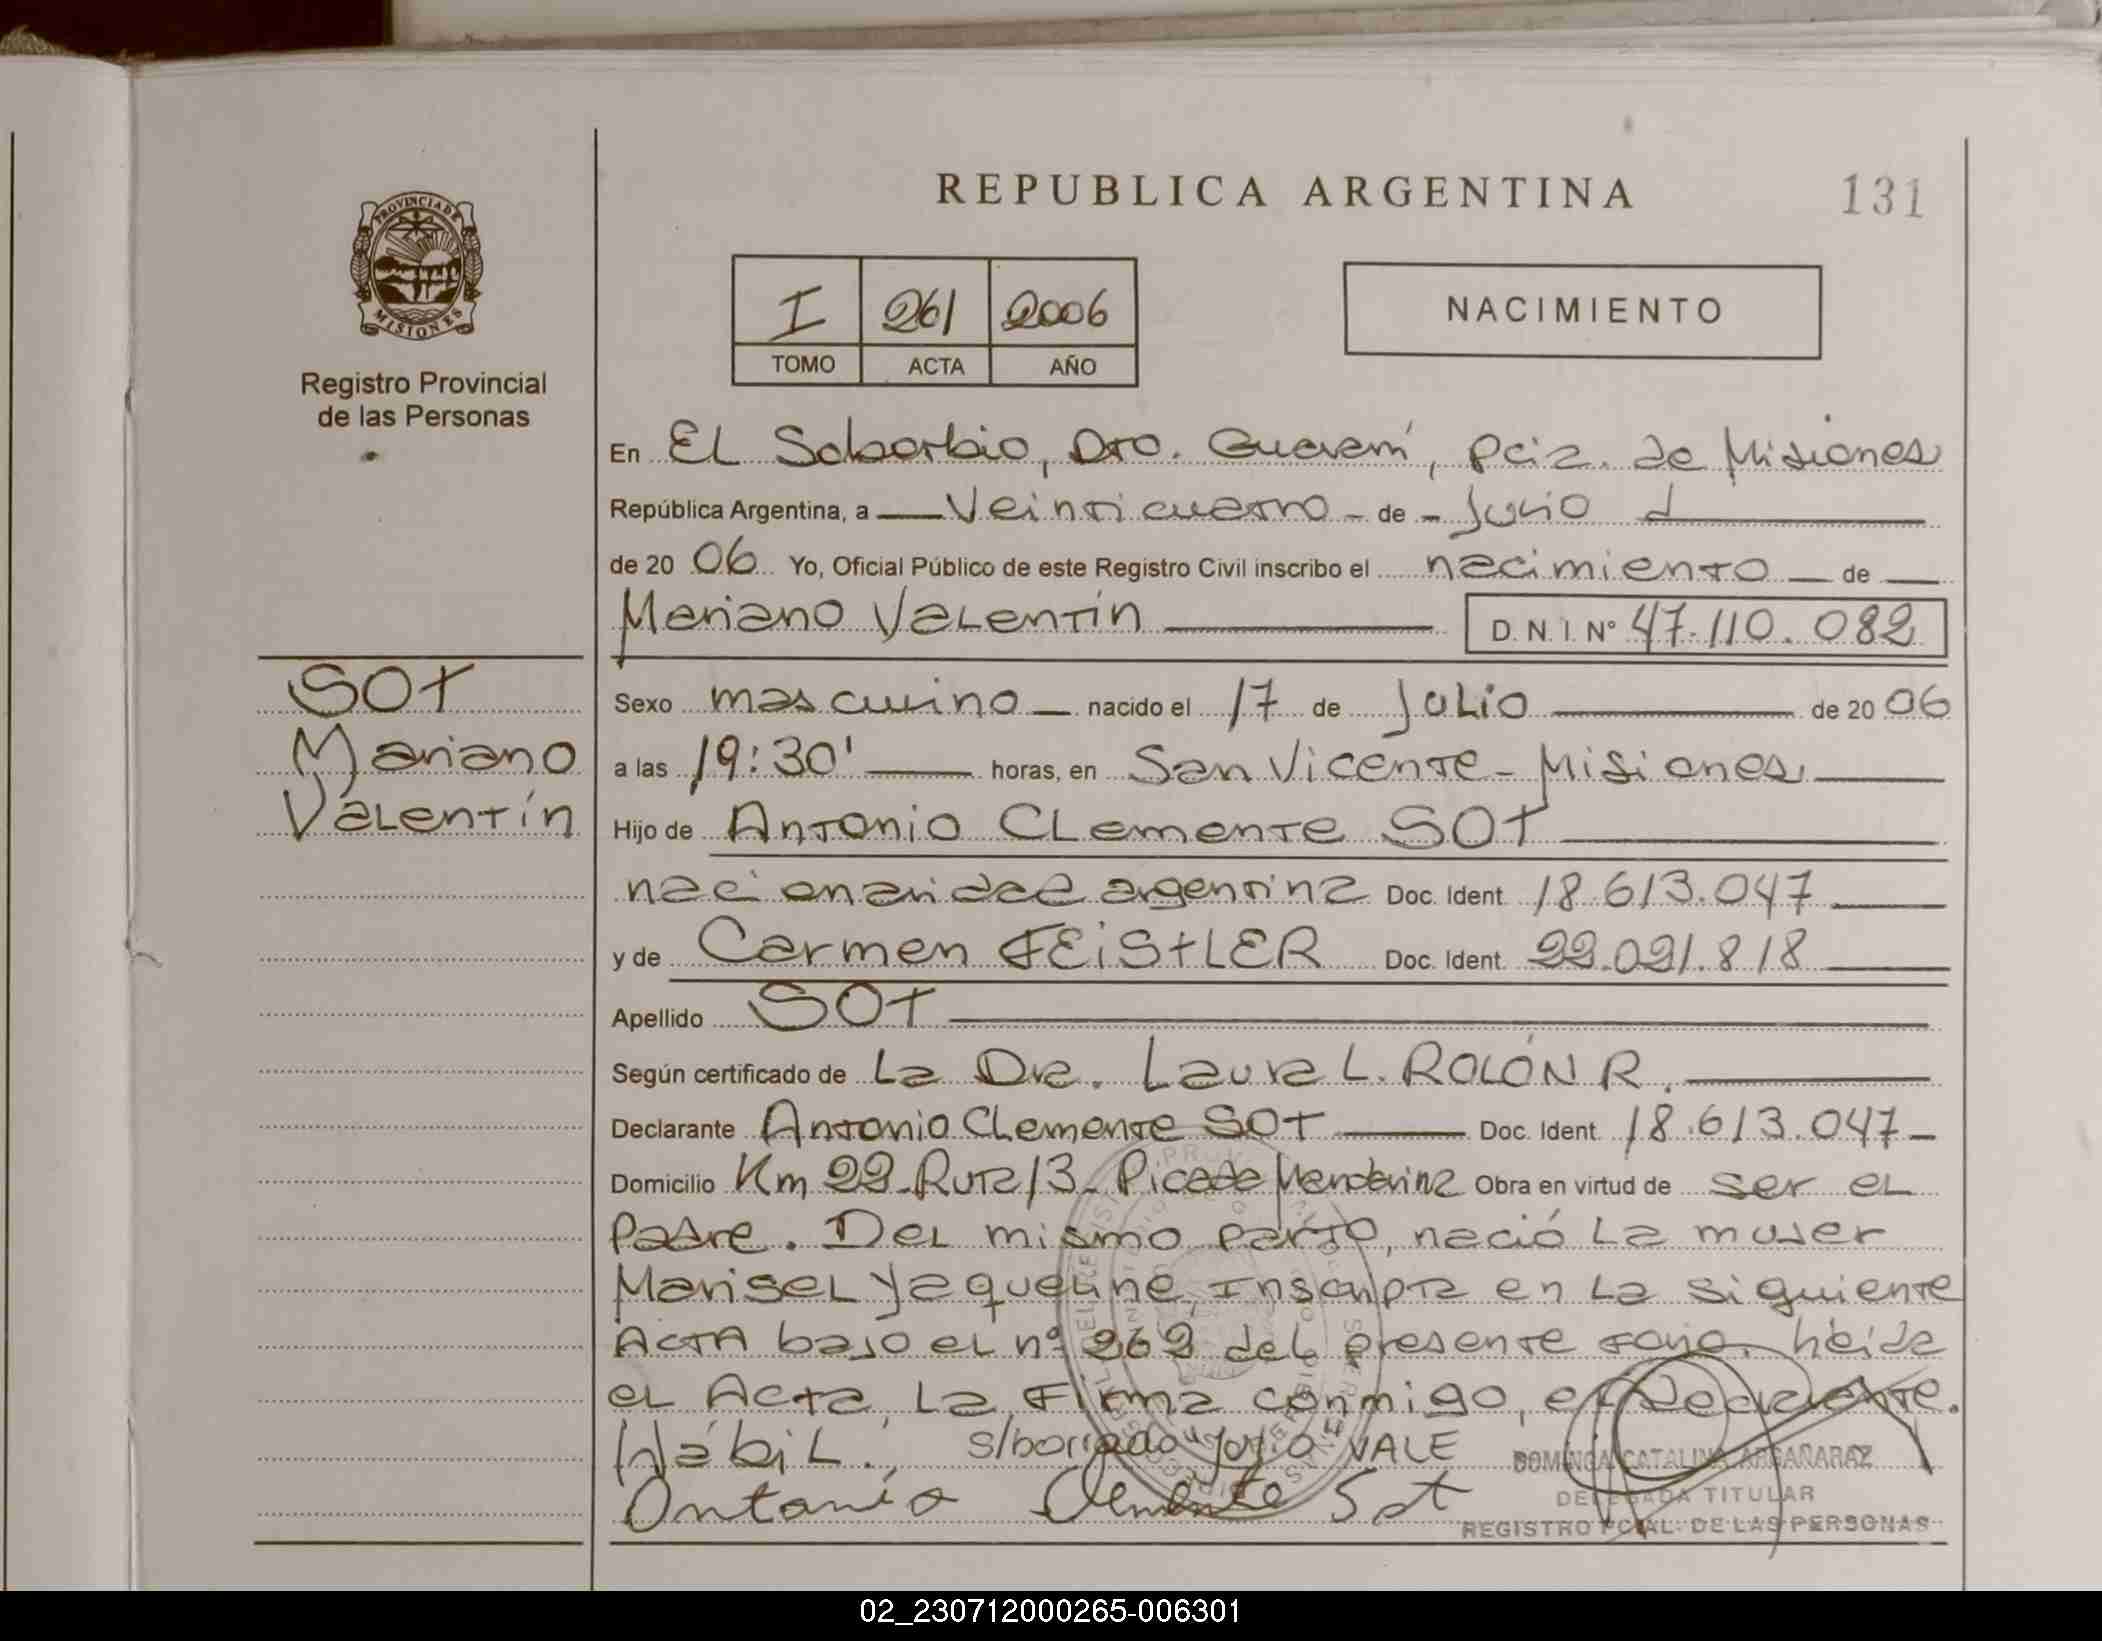 REPUBLICA ARGENTINA
131
PROVINCIA DE
MISIONES
Registro Provincial
de las Personas
I 261 2006
TOMO ACTA AÑO
NACIMIENTO
En EL Soberbio, Dto. Guaraní, Pcia. de Misiones
República Argentina, a Veinticuatro - de - Julio
de 20 06 Yo, Oficial Público de este Registro Civil inscribo el nacimiento de
Mariano Valentín D.N.I. Nº 47.110.082
SOT
Mariano
Valentín
Sexo masculino nacido el 17 de Julio de 20 06
a las 19:30' horas, en San Vicente - Misiones
Hijo de Antonio Clemente SOT
nacionalidad argentina Doc. Ident. 18.613.047
y de Carmen FEiStLER Doc. Ident. 22.021.818
Apellido SOT
Según certificado de La Dra. Laura L. ROLÓN R.
Declarante Antonio Clemente SOT Doc. Ident. 18.613.047 -
Domicilio Km 22 - Ruta 13 - Picada Mandarina Obra en virtud de ser el
Padre. Del mismo parto, nació La mujer
Marisel Yaqueline, Inscripta en La siguiente
Acta bajo el nº 262 del presente Leída
el Acta, La Firma conmigo, el Declarante.
Hábil. s/borrado "Julio" VALE
Antonio Clemente Sot
DOMINGA CATALINA ARGAÑARAZ
DELEGADA TITULAR
REGISTRO PCIAL. DE LAS PERSONAS
02_230712000265-006301